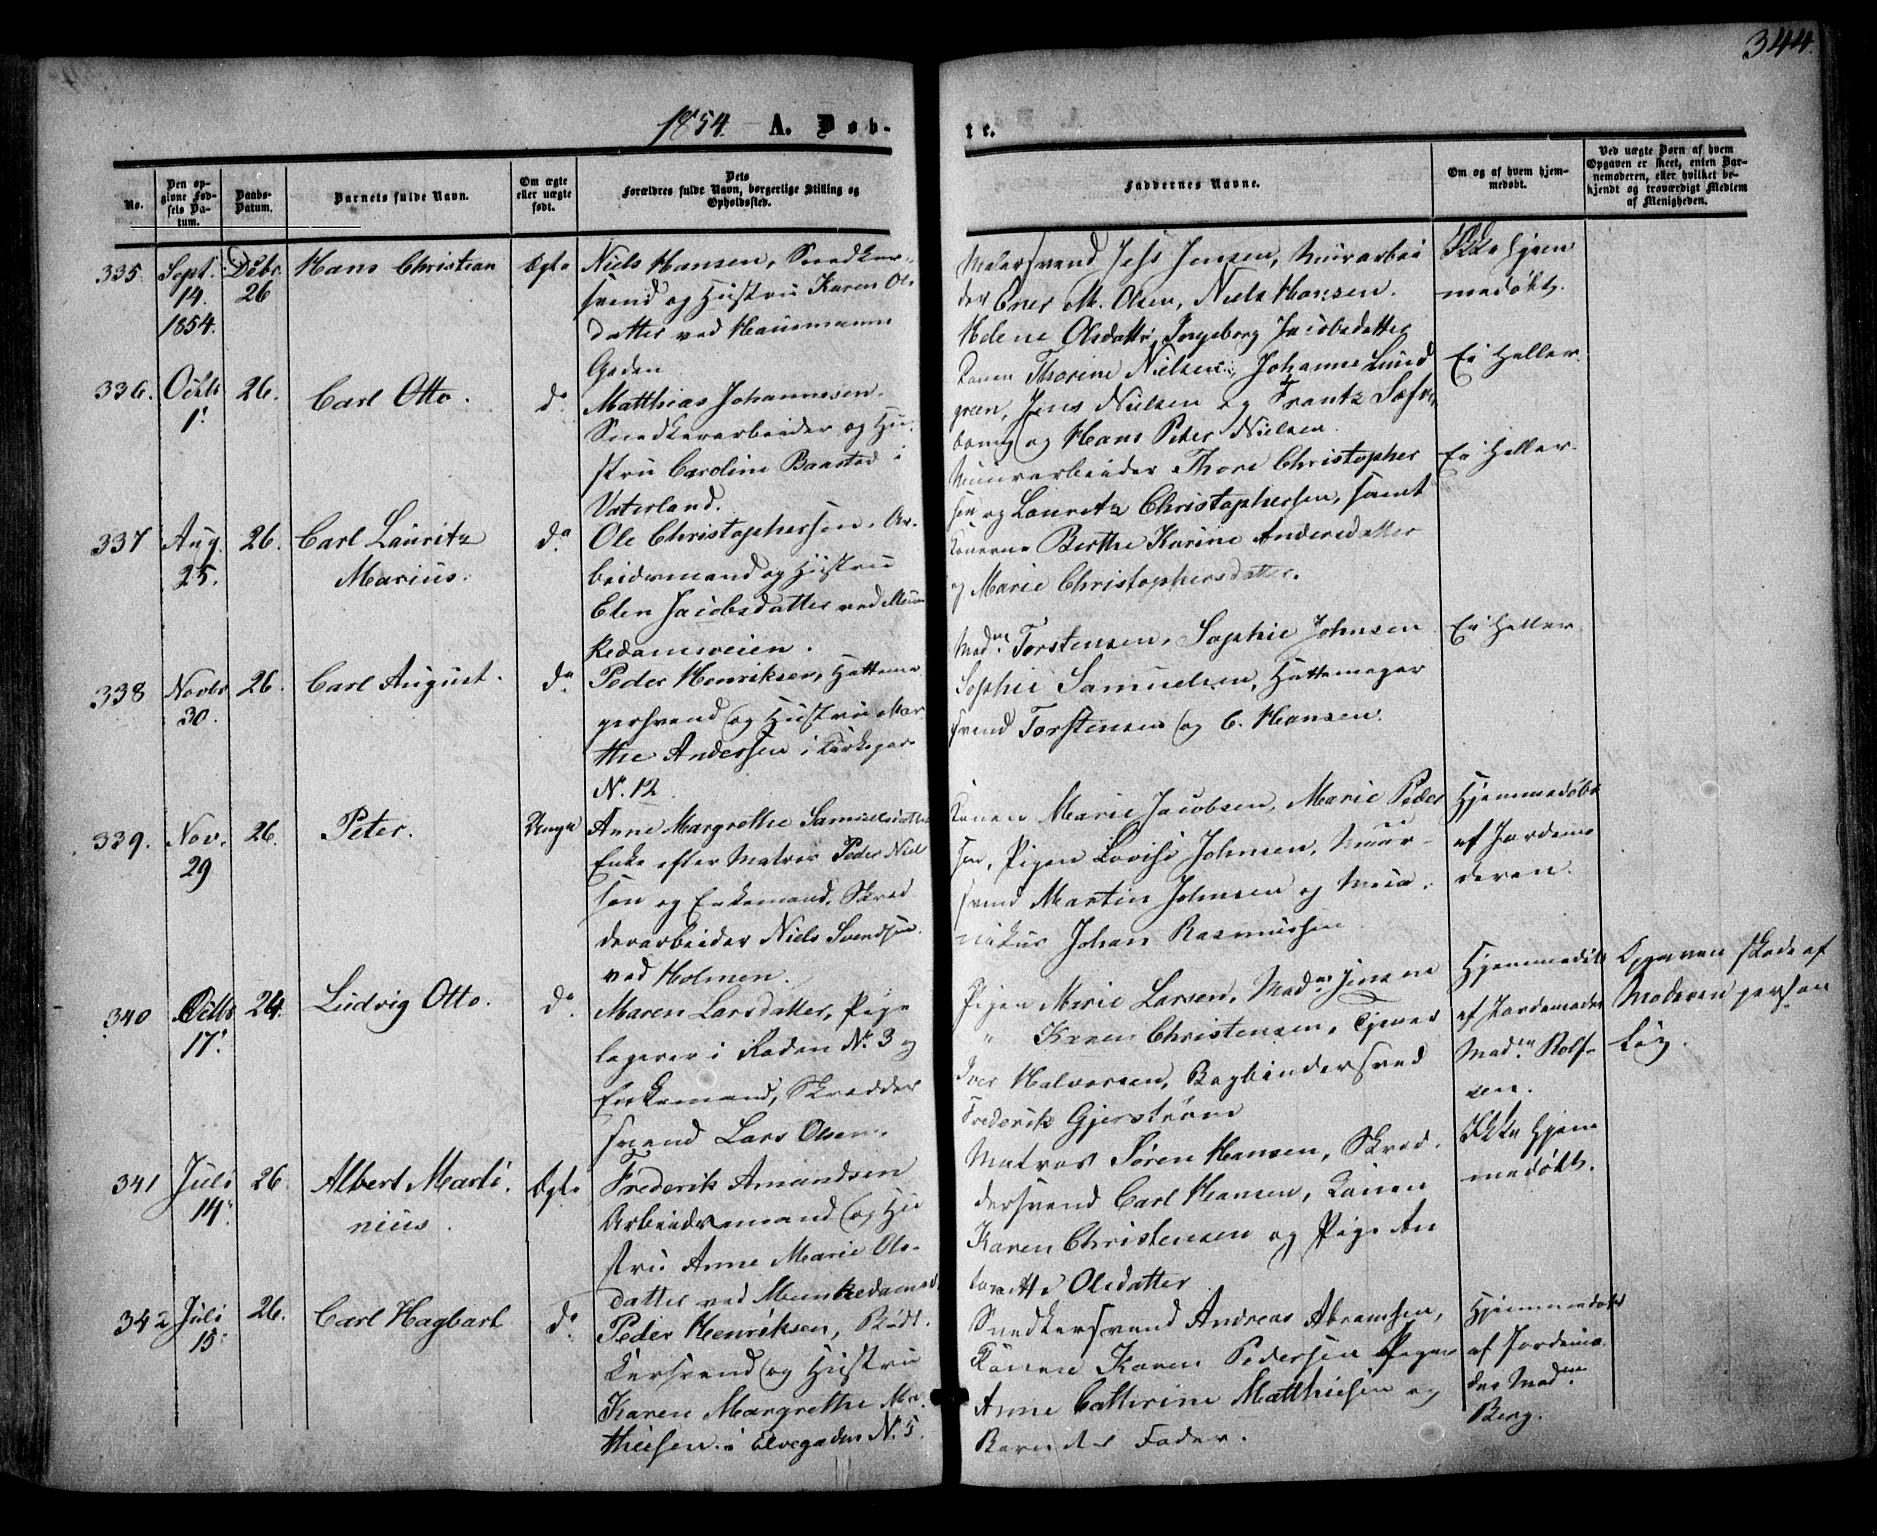 344.
1854. A. Døb-
te.
No.
Den opgivne Fødsels Datum.
Daabs-Datum.
Barnets fulde Navn.
Om ægte eller uægte født.
Dets Forældres fulde Navn, borgerlige Stilling og Opholdssted.
Faddernes Navne.
Om og af hvem hjemmedøbt.
Ved uægte Børn af hvem Opgaven er skeet, enten Barnemoderen, eller hvilket bekjendt og troværdigt Medlem af Menigheden.
335. Sept. 14. 1854. Debr. 26 Hans Christian Ægte
Niels Hansen, Snedker-
svend og Hustru Karen Ols
datter ved Hausmanns
Gaden
Malersvend Jens Jensen, Murarbei
der Ener M. Olsen, Niels Hansen.
Helene Olsdatter, Ingeborg Jacobsdatter
Ikke hjem
medøbt.
336. Octb. 1. 26. Carl Otto. do
Matthias Johannesen.
Snedkerarbeider og Hu-
stru Caroline Baastad i
Vaterland.
Konen Thorine Nielsen, Johanne Lund
green, Jens Nielsen og Frantz
og Hans Peter Nielsen.
Ei Heller.
337 Aug. 25. 26. Carl Lauritz
Marius. do
Ole Christophersen. Ar-
beidsmand og Hustru
Elen Jacobsdatter ved Mun
kedamsveien.
Muurarbeider Thore Christopher
sen og Lauretz Christophersen, samt
Konerne Berthe Karine Andersdatter
og Marie Christophersdatter.
Ei Heller.
338 Novbr 30. 26. Carl August. do
Peder Henriksen, Hattema
gersvend og Hustru Mar
the Andersen i Kirkegar.
N. 12
Mad. Torstensen, Sophie Johnsen
Sophie Samuelsen, Hattemager
svend Torstensen og C. Hansen.
Ei Heller.
339. Nov. 29 26. Peter. Uægte
Anne Margrethe Samuelsdatter
Enke efter Matros Peder Niel
sen og Enkemand, Skred
derarbeider Niels Svendsen.
ved Holmen.
Konen Marie Jacobsen, Marie Peder
sen, Pigen Lovise Johnsen, Muur-
svend Martin Johnsen og
Johan Rasmussen
Hjemmedøbt
af Jordemo
deren.
340 Octbr 17. 24. Ludvig Otto. do
Maren Larsdatter, Pige
logerer i Raden No. 3 og
Enkemand, Skredder
svend Lars Olsen.
Pigen Marie Larsen, Madm Jensen
" Karen Christensen, Tjener
Iver Halvorsen, Bogbindersvend
Frederik Gjerstrøm
Hjemmedøbt
af Jordemoder
Madm. Rolf-
sen.
Opgaven skede af
Moderen person
lig.
341 Juli 14. 26. Albert Marti-
nius. Ægte
Frederik Amundsen
Arbeidsmand og Hu
stru Anne Marie Ols-
datter ved Munkedamsv.
Matros Søren Hansen, Skred-
dersvend Carl Hansen, Konen
Karen Christensen og Pige An
tonette Olsdatter
Ikke hjem
medøbt.
342 Juli 15. 26. Carl Hagbart do
Peder Henriksen, Bødt.
kersvend og Hustru
Karen Margrethe Ma-
thiesen i Elvegaden N. 5.
Snedkersvend Andreas Abramsen,
Konen Karen Pedersen Pigen
Anne Cathrine Matthiesen og
Barnets Fader.
Hjemmedøbt
af Jordemo-
der Madm.
Berg.